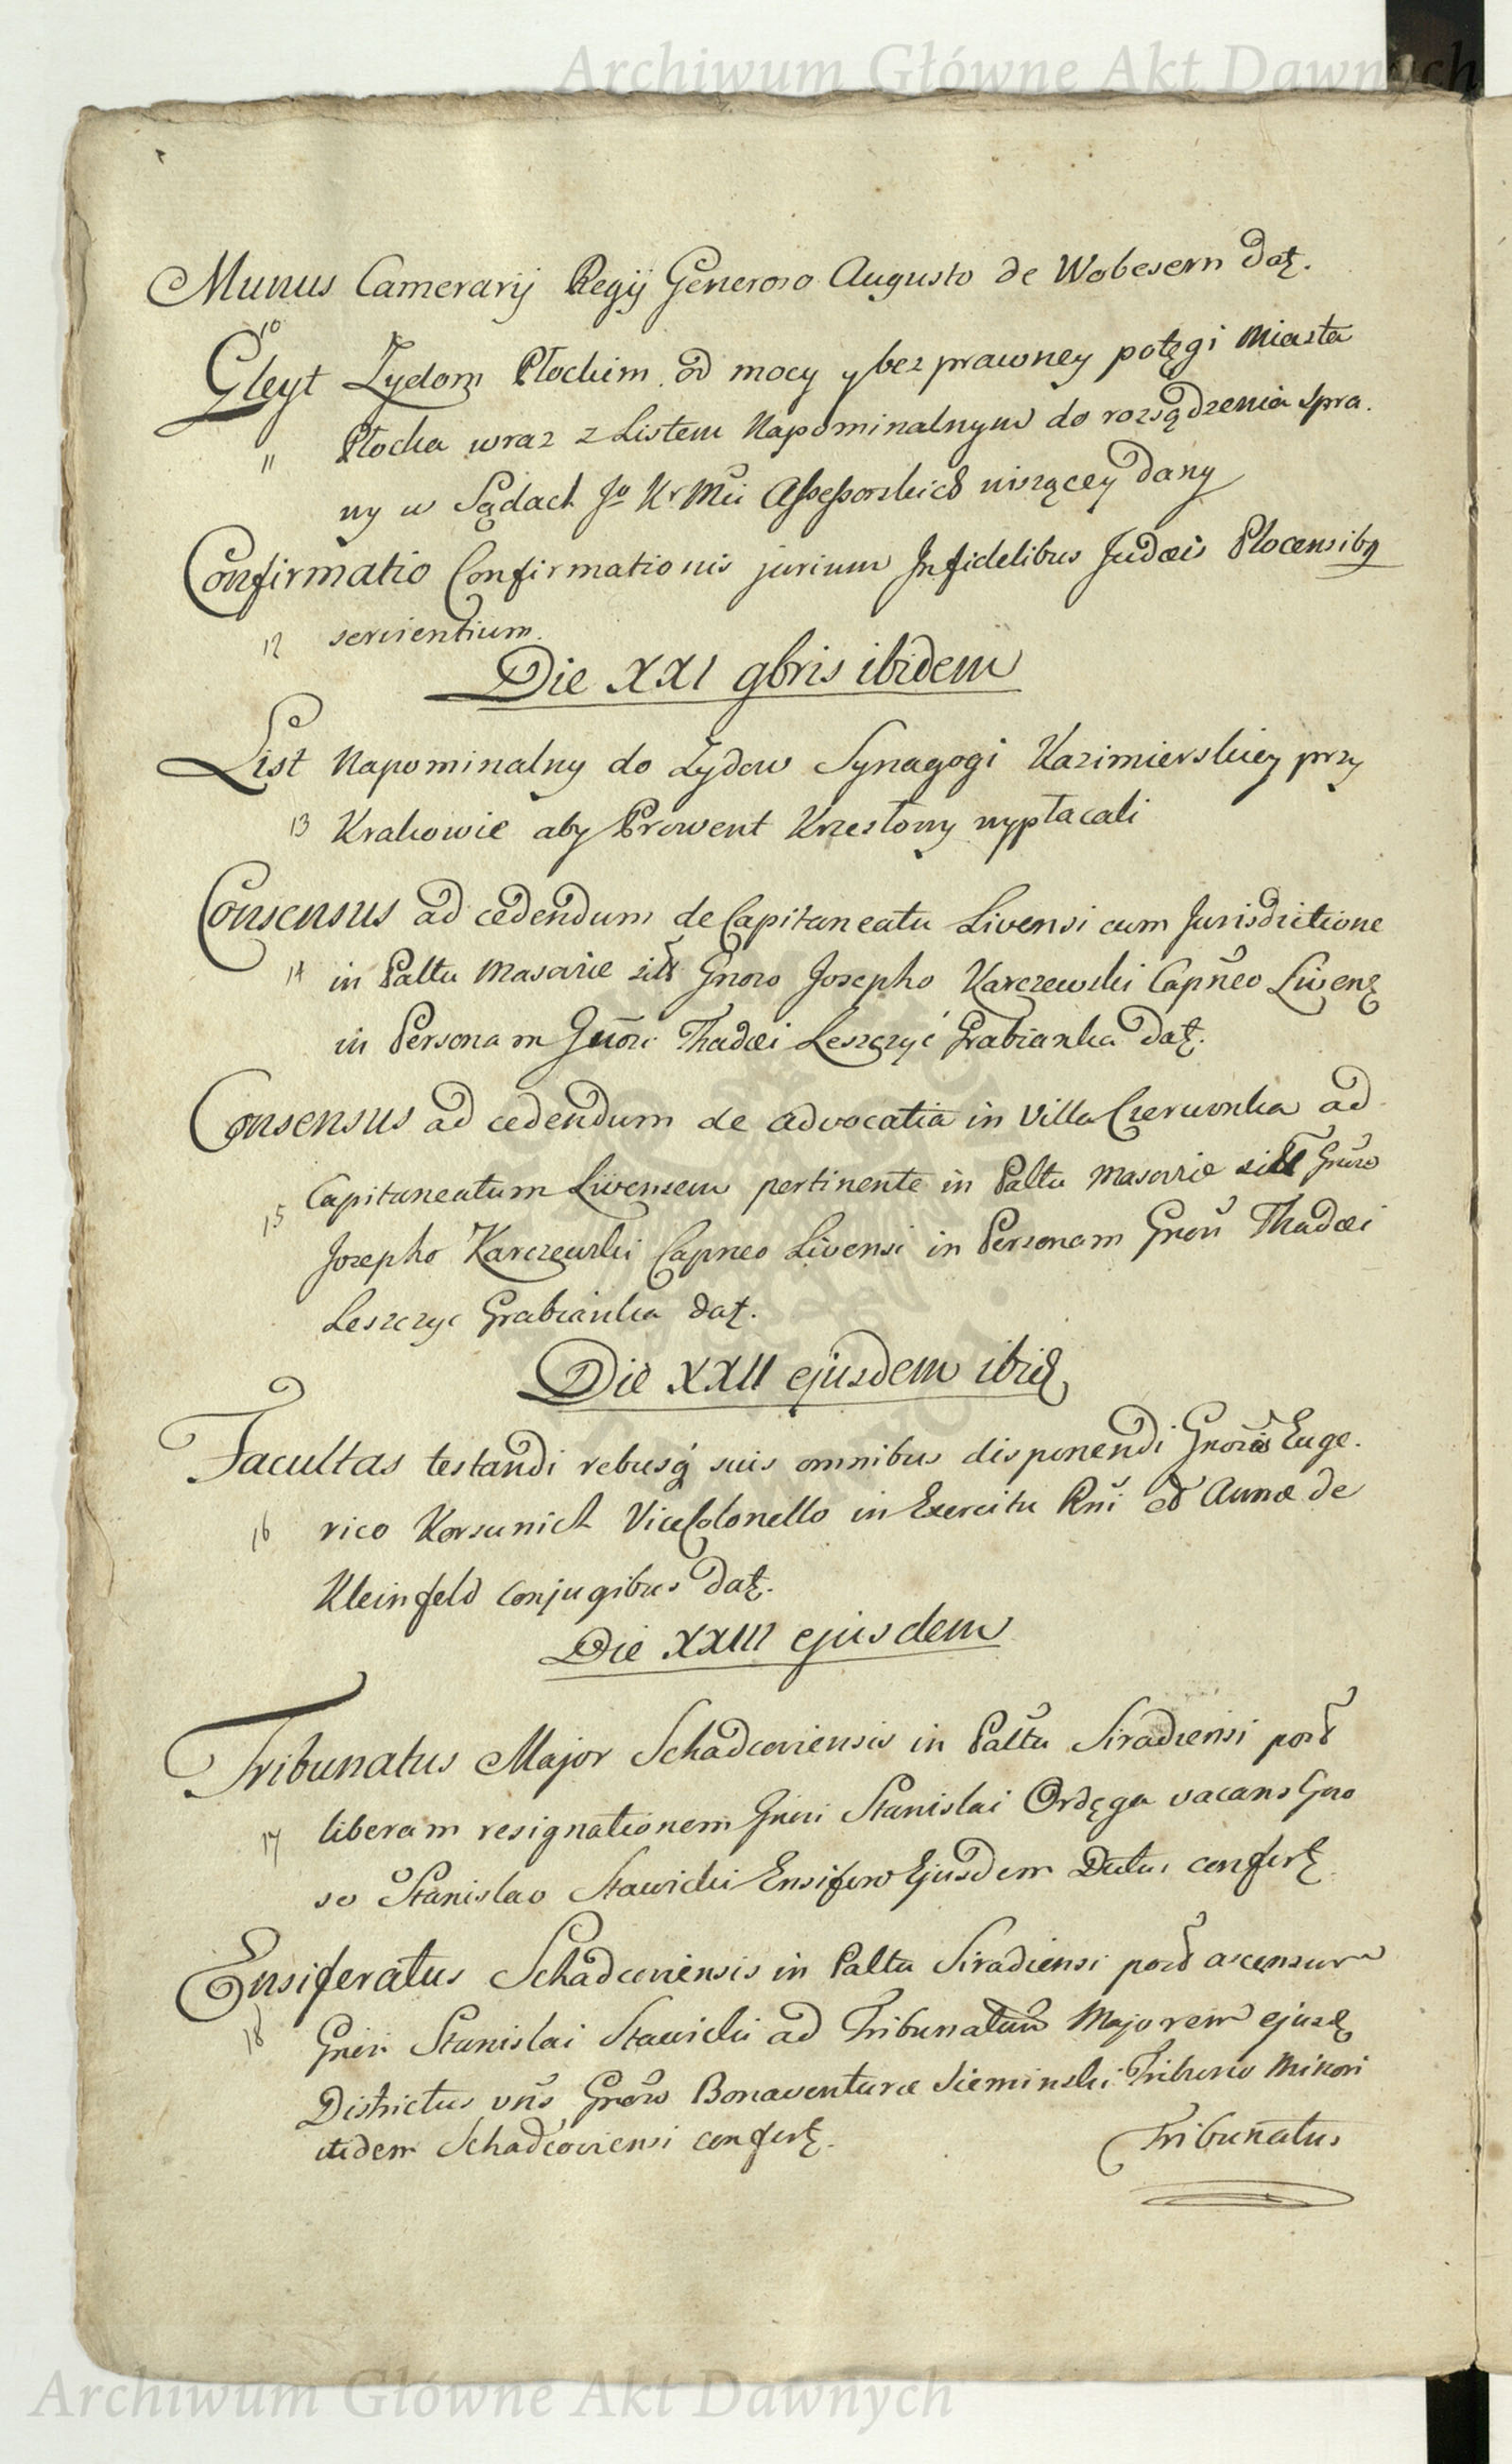 Archiwum Główne Akt Dawnych
Munus Camerarij Regij Generoso Augusto de Wobesern datę.
10
Gleyt Żydom Płockim od mocy y bezprawney potęgi Miasta
11 Płocka wraz z Listem Napominalnym do rozsądzenia spra.
wy w Sądach Jo Kr Mći Assessorskich wiszącey dany
Confirmatio Confirmationis jurium Infidelibus Judæis Plocensibq
12 servientium.
Die XXI 9bris ibidem
List Napominalny do Żydow Synagogi Kazimierskiey przy
13 Krakowie aby Prowent Krzesłowy wypłacali
Consensus ad cedendum de Capitaneatu Livensi cum Jurisdictione
14 in Pałtu Masoviæ Gnoso Josepho Karczewski Capneo Livenę
in Personam Gnosi Thadæi Leszczyć Grabianka datę.
Consensus ad cedendum de advocatia in Villa Czerwonka ad
15 Capitaneatum Livensem pertinente in Pałtu Masoviæ Gnoso
Josepho Karczewski Capneo Livensi in Personam Gnosi Thadæi
Leszczyc Grabianka datę.
Die XXII ejusdem ibię
Facultas testandi rebusq suis omnibus disponendi Gnosis Euge.
16 rico Korsunich ViceColonello in Exercitu Rni et Annæ de
Kleinfeld conjugibus datę.
Die XXIII ejusdem
Tribunatus Major Schadcoviensis in Pałtu Siradiensi post
17 liberam resignationem Gnosi Stanislai Ordęga vacans Gno
so Stanislao Stawicki Ensifero Ejusdem Dictus confertę.
Ensiferatus Schadcoviensis in Paltu Siradiensi post ascensum
18 Gnosi Stanislai Stawicki ad Tribunatum Majorem ejusdę
Districtus vns Gnoso Bonaventuræ Sieminski Tribuno Minori
itidem Schadcoviensi confertę.
Tribunatus
Archiwum Główne Akt Dawnych